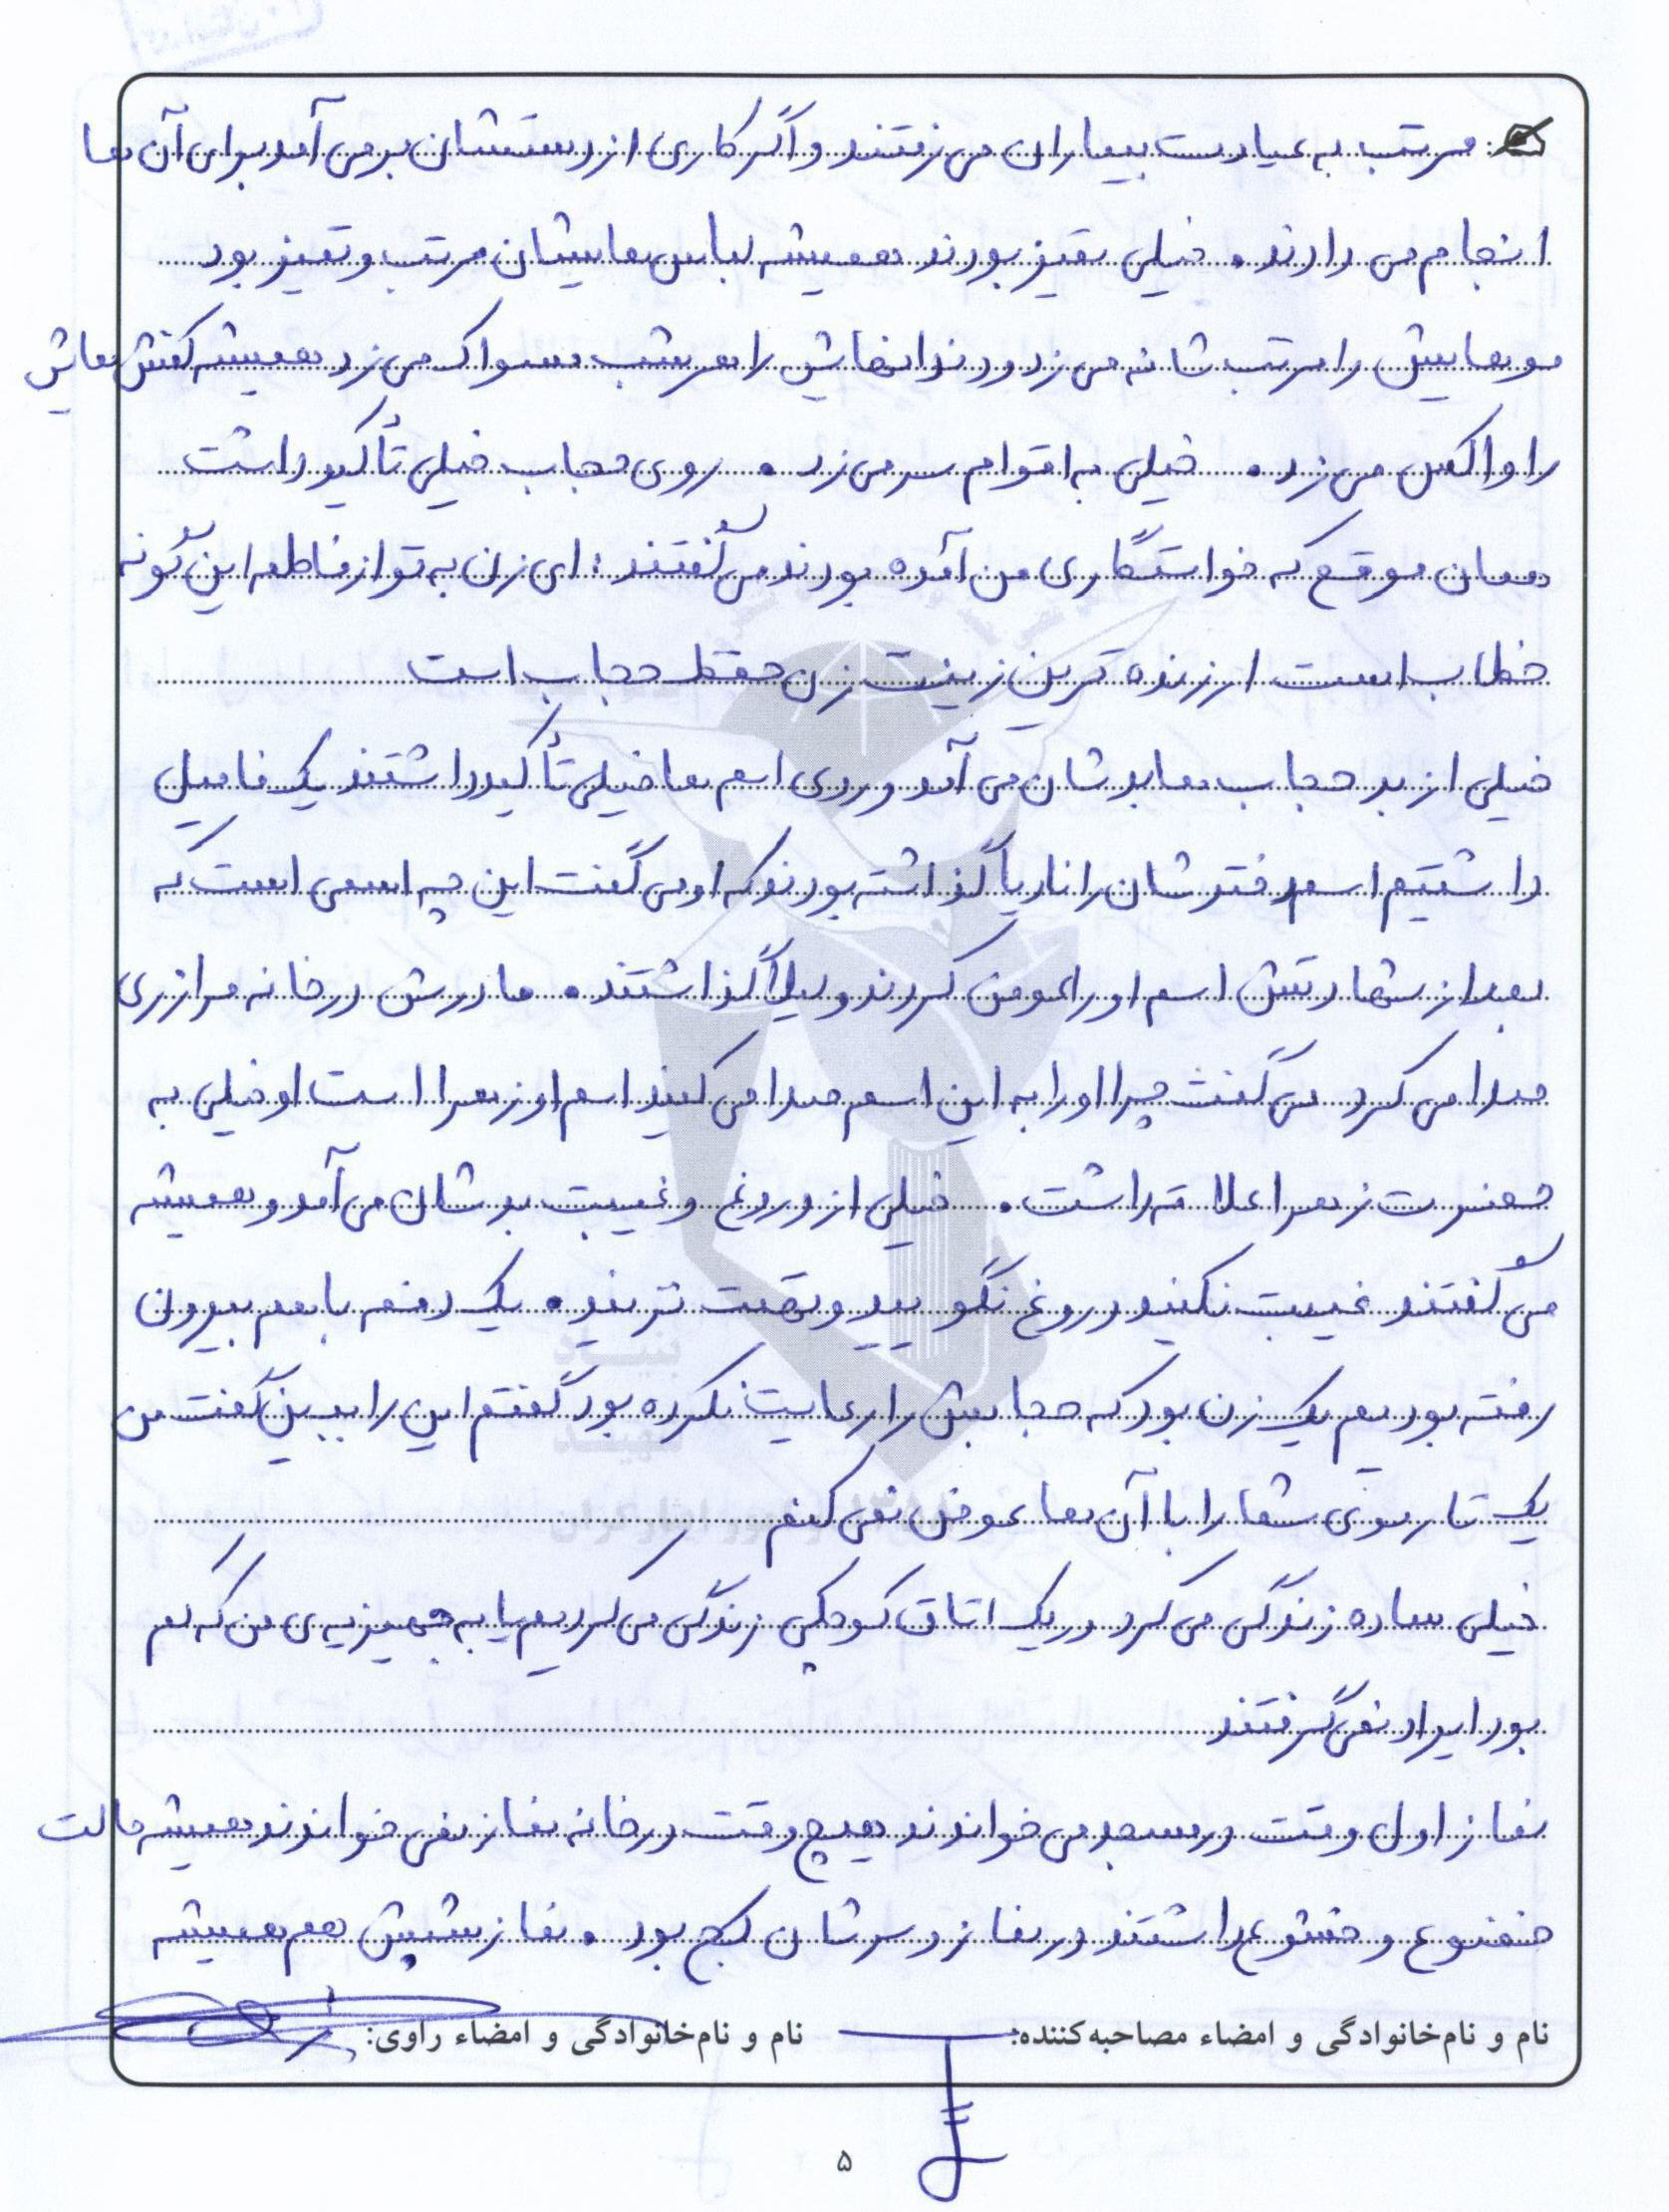 مرتب به عیادت بیماران می رفتند و اگر کاری از دستشان بر می آمد برای آن ها
انجام می دادند . خیلی تمیز بودند همیشه لباس هایشان مرتب و تمیز بود
موهایش را مرتب شانه می زد و دندانهایش را هر شب مسواک می زد همیشه کفش هایش
را واکس می زد . خیلی به اقوام سر می زد . روی حجاب خیلی تأکید داشت
همان موقع که خواستگاری من آمده بودند می گفتند : ای زن به تو از فاطمه این گونه
خطاب است ارزنده ترین زینت زن حفظ حجاب است
خیلی از بد حجاب ها بدشان می آمد و روی اسم ها خیلی تأکید داشتند یک فامیل
داشتیم اسم دخترشان را ناریا گذاشته بودند که او می گفت این چه اسمی است که
بعد از شهادتش اسم او را عوض کردند و لیلا گذاشتند . مادرش در خانه مرا زری
صدا می کرد می گفت چرا او را به این اسم صدا می کنید اسم او زهرا است او خیلی به
حضرت زهرا علاقه داشت . خیلی از دروغ و غیبت بدشان می آمد و همیشه
می گفتند غیبت نکنید دروغ نگویید و تهمت نزنید . یک دفعه با هم بیرون
رفته بودیم یک زن بود که حجابش را رعایت نکرده بود گفتم این را ببین گفت من
یک تار موی شما را با آن ها عوض نمی کنم
خیلی ساده زندگی می کرد در یک اتاق کوچکی زندگی می کردیم یا به جهیزیه ی من که کم
بود ایراد نمی گرفتند
نماز اول وقت در مسجد می خواندند هیچ وقت در خانه نماز نمی خواندند همیشه حالت
خضوع و خشوع داشتند در نماز و سرشان کج بود . نماز شبش هم همیشه
نام و نام‌خانوادگی و امضاء مصاحبه‌کننده: نام و نام‌خانوادگی و امضاء راوی:
۵